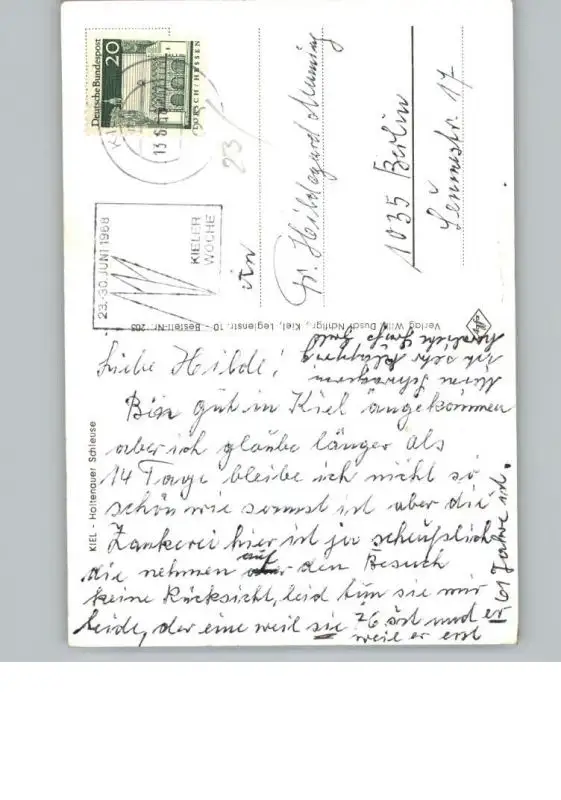 Deutsche Bundespost
20
LORSCH / HESSEN
23
23.-30. JUNI 1968
KIELER
WOCHE
An
Fr. Hildegard
1035 Berlin
17
KIEL - Holtenauer Schleuse
Verlag Willy Dusch Nchflgr., Kiel, Legienstr. 10 - Bestell-Nr. 203
Liebe Hilde!
Bin gut in Kiel angekommen
aber ich glaube länger als
14 Tage bleibe ich nicht so
schön wie sonnst ist aber die
Zankerei hier ist ja scheußlich
die nehmen auf den Besuch
keine Rücksicht, leid tun sie mir
beide, der eine weil sie 76 ist und er
weil er erst
61 Jahre ist.
ich sehr
herzliche Grüße